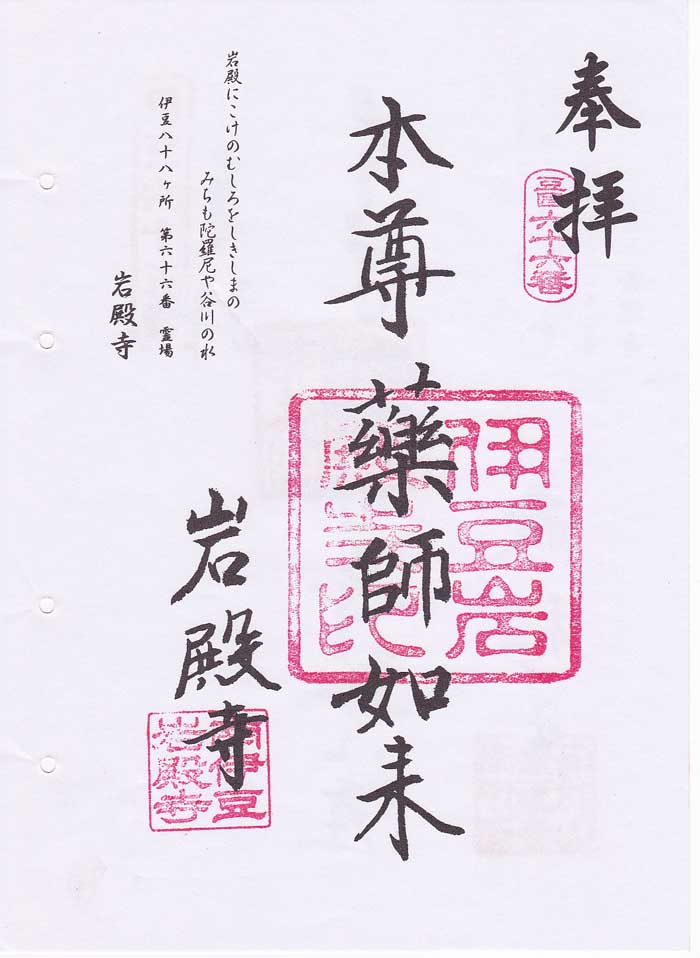 奉拝
豆国六十六番
本尊藥師如来
伊豆岩
岩殿寺
南伊豆
岩殿寺
岩殿にこけのむしろをしきしまの
みちも陀羅尼や谷川の水
伊豆八十八ヶ所 第六十六番 霊場
岩殿寺